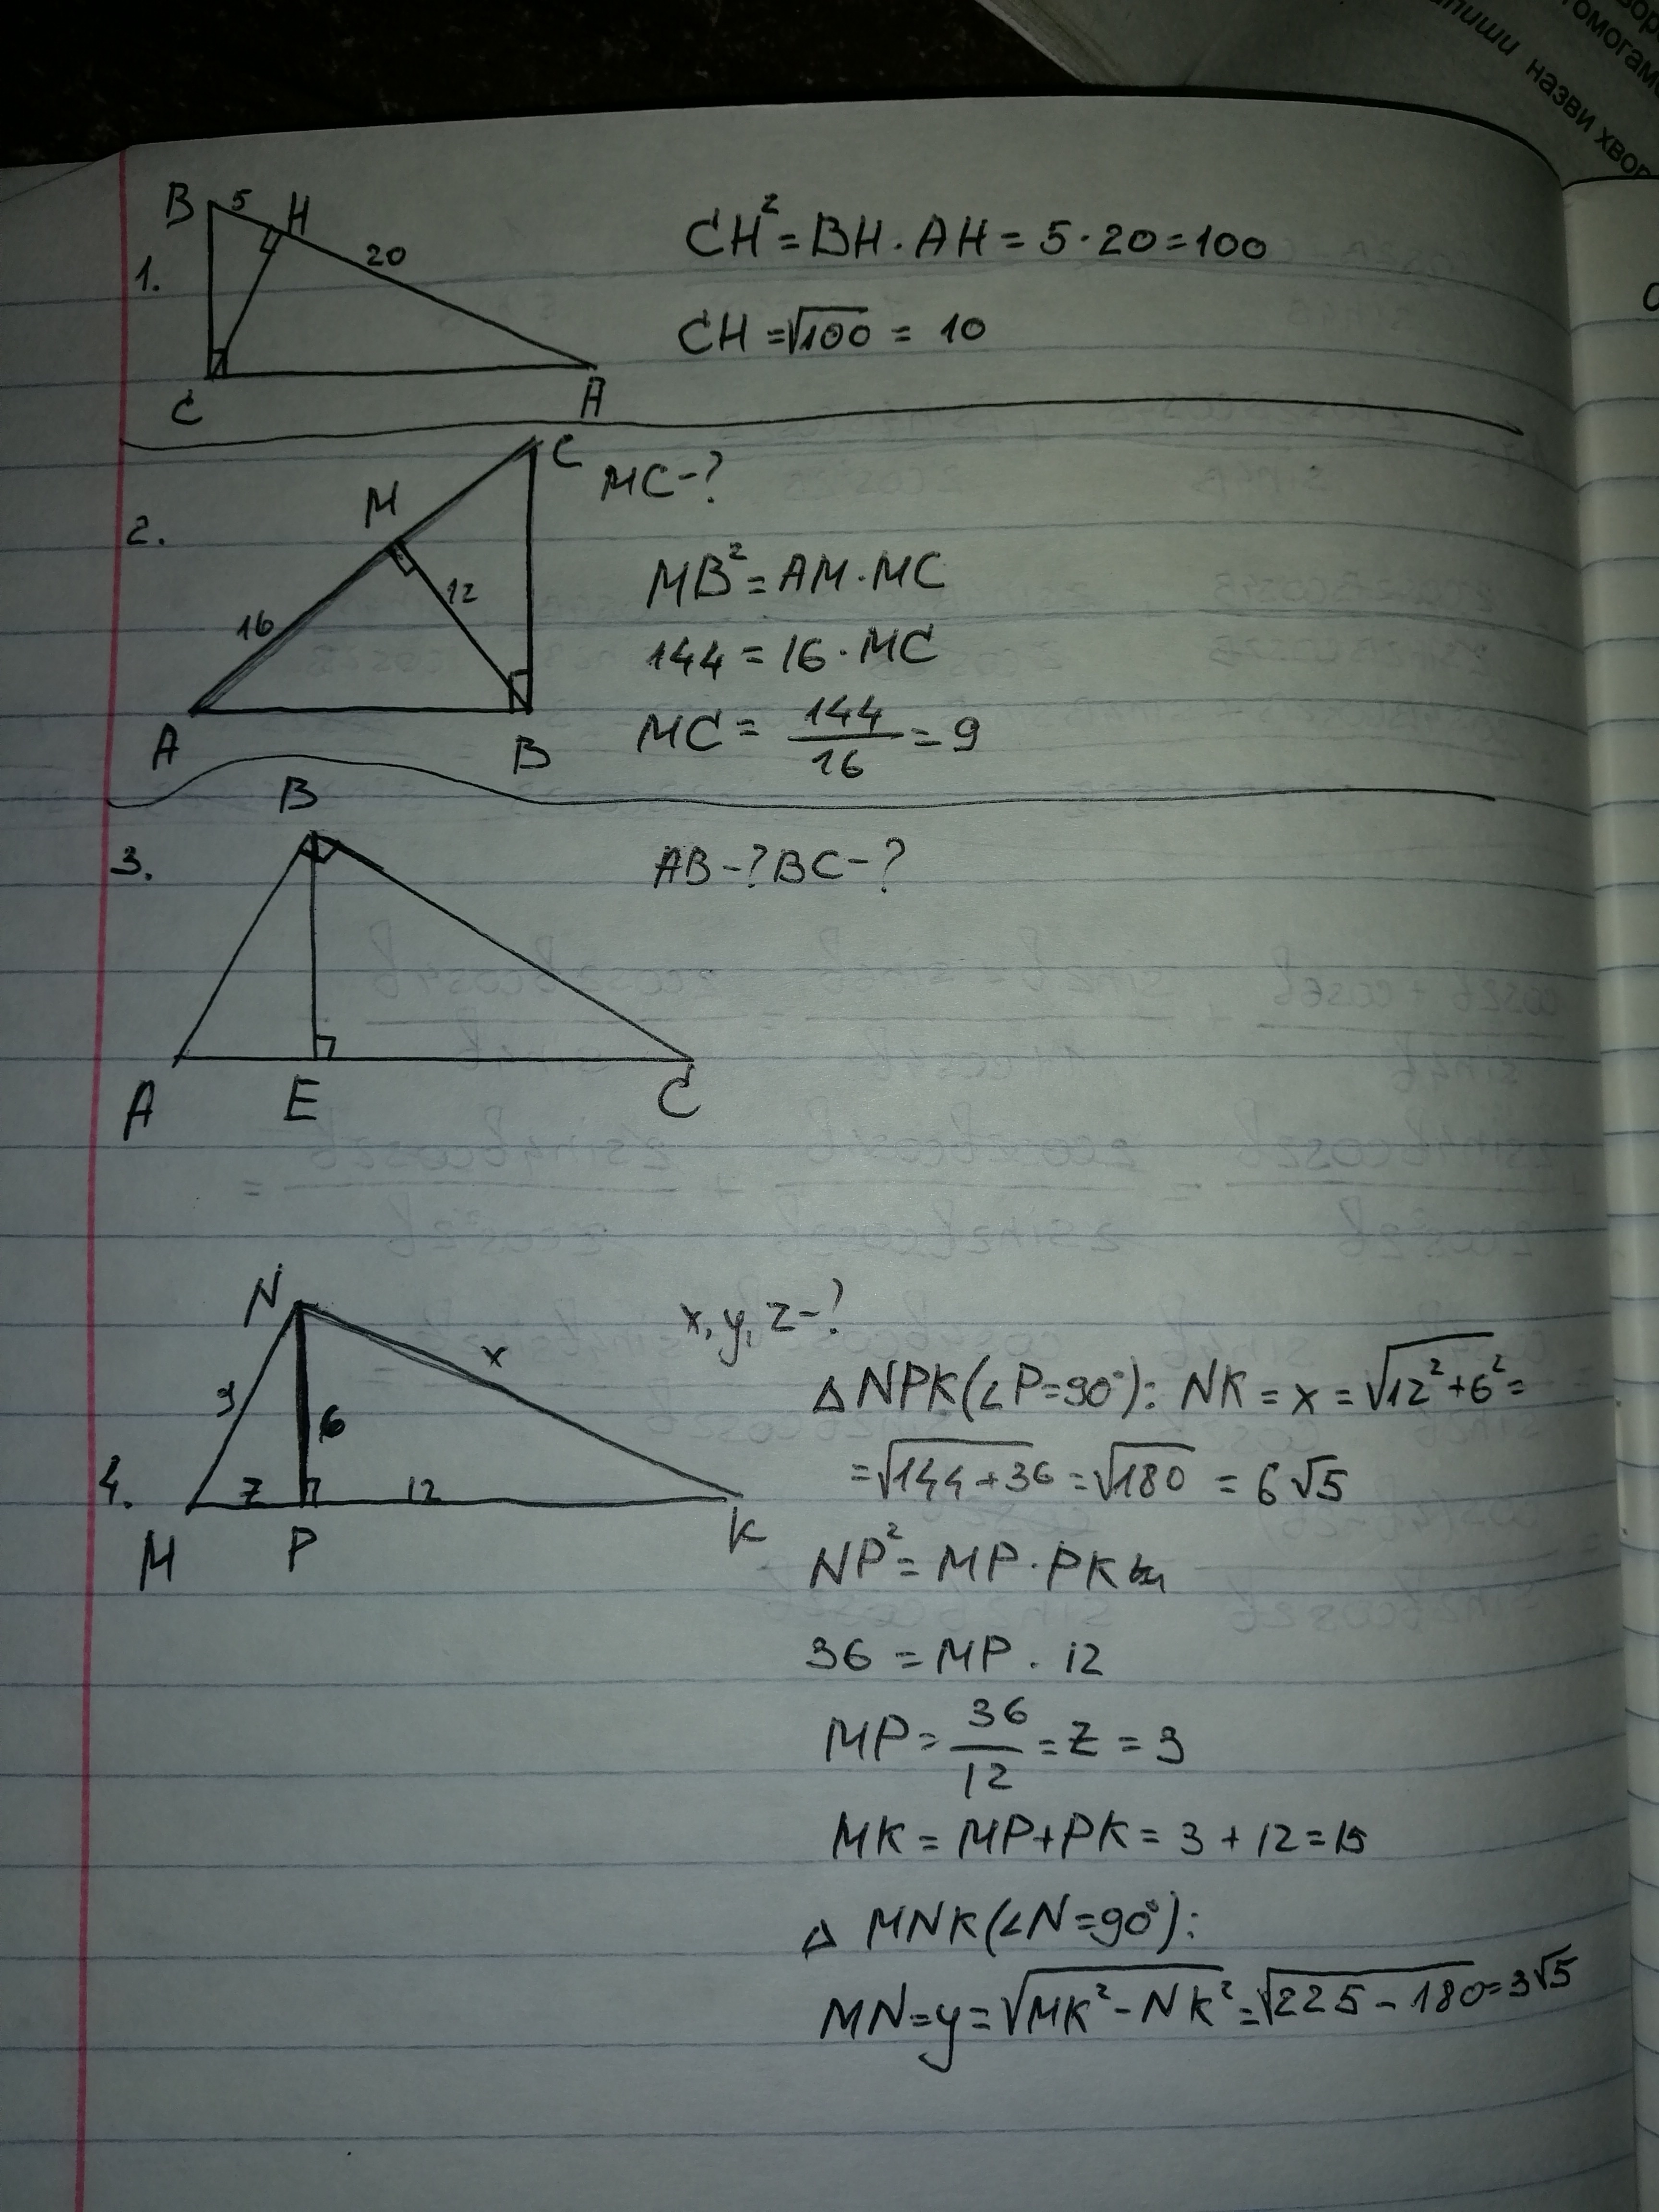 назви хвор
1.
B 5 H
20
C A
CH² = BH · AH = 5 · 20 = 100
CH = √100 = 10
2.
C
M
16 12
A B
MC - ?
MB² = AM · MC
144 = 16 · MC
MC = 144/16 = 9
3.
B
A E C
AB - ? BC - ?
4.
N
y 6 x
z 12
M P K
x, y, z - ?
△ NPK (∠P = 90°): NK = x = √12² + 6² =
= √144 + 36 = √180 = 6√5
NP² = MP · PK
36 = MP · 12
MP = 36/12 = z = 3
MK = MP + PK = 3 + 12 = 15
△ MNK (∠N = 90°):
MN = y = √MK² - NK² = √225 - 180 = 3√5